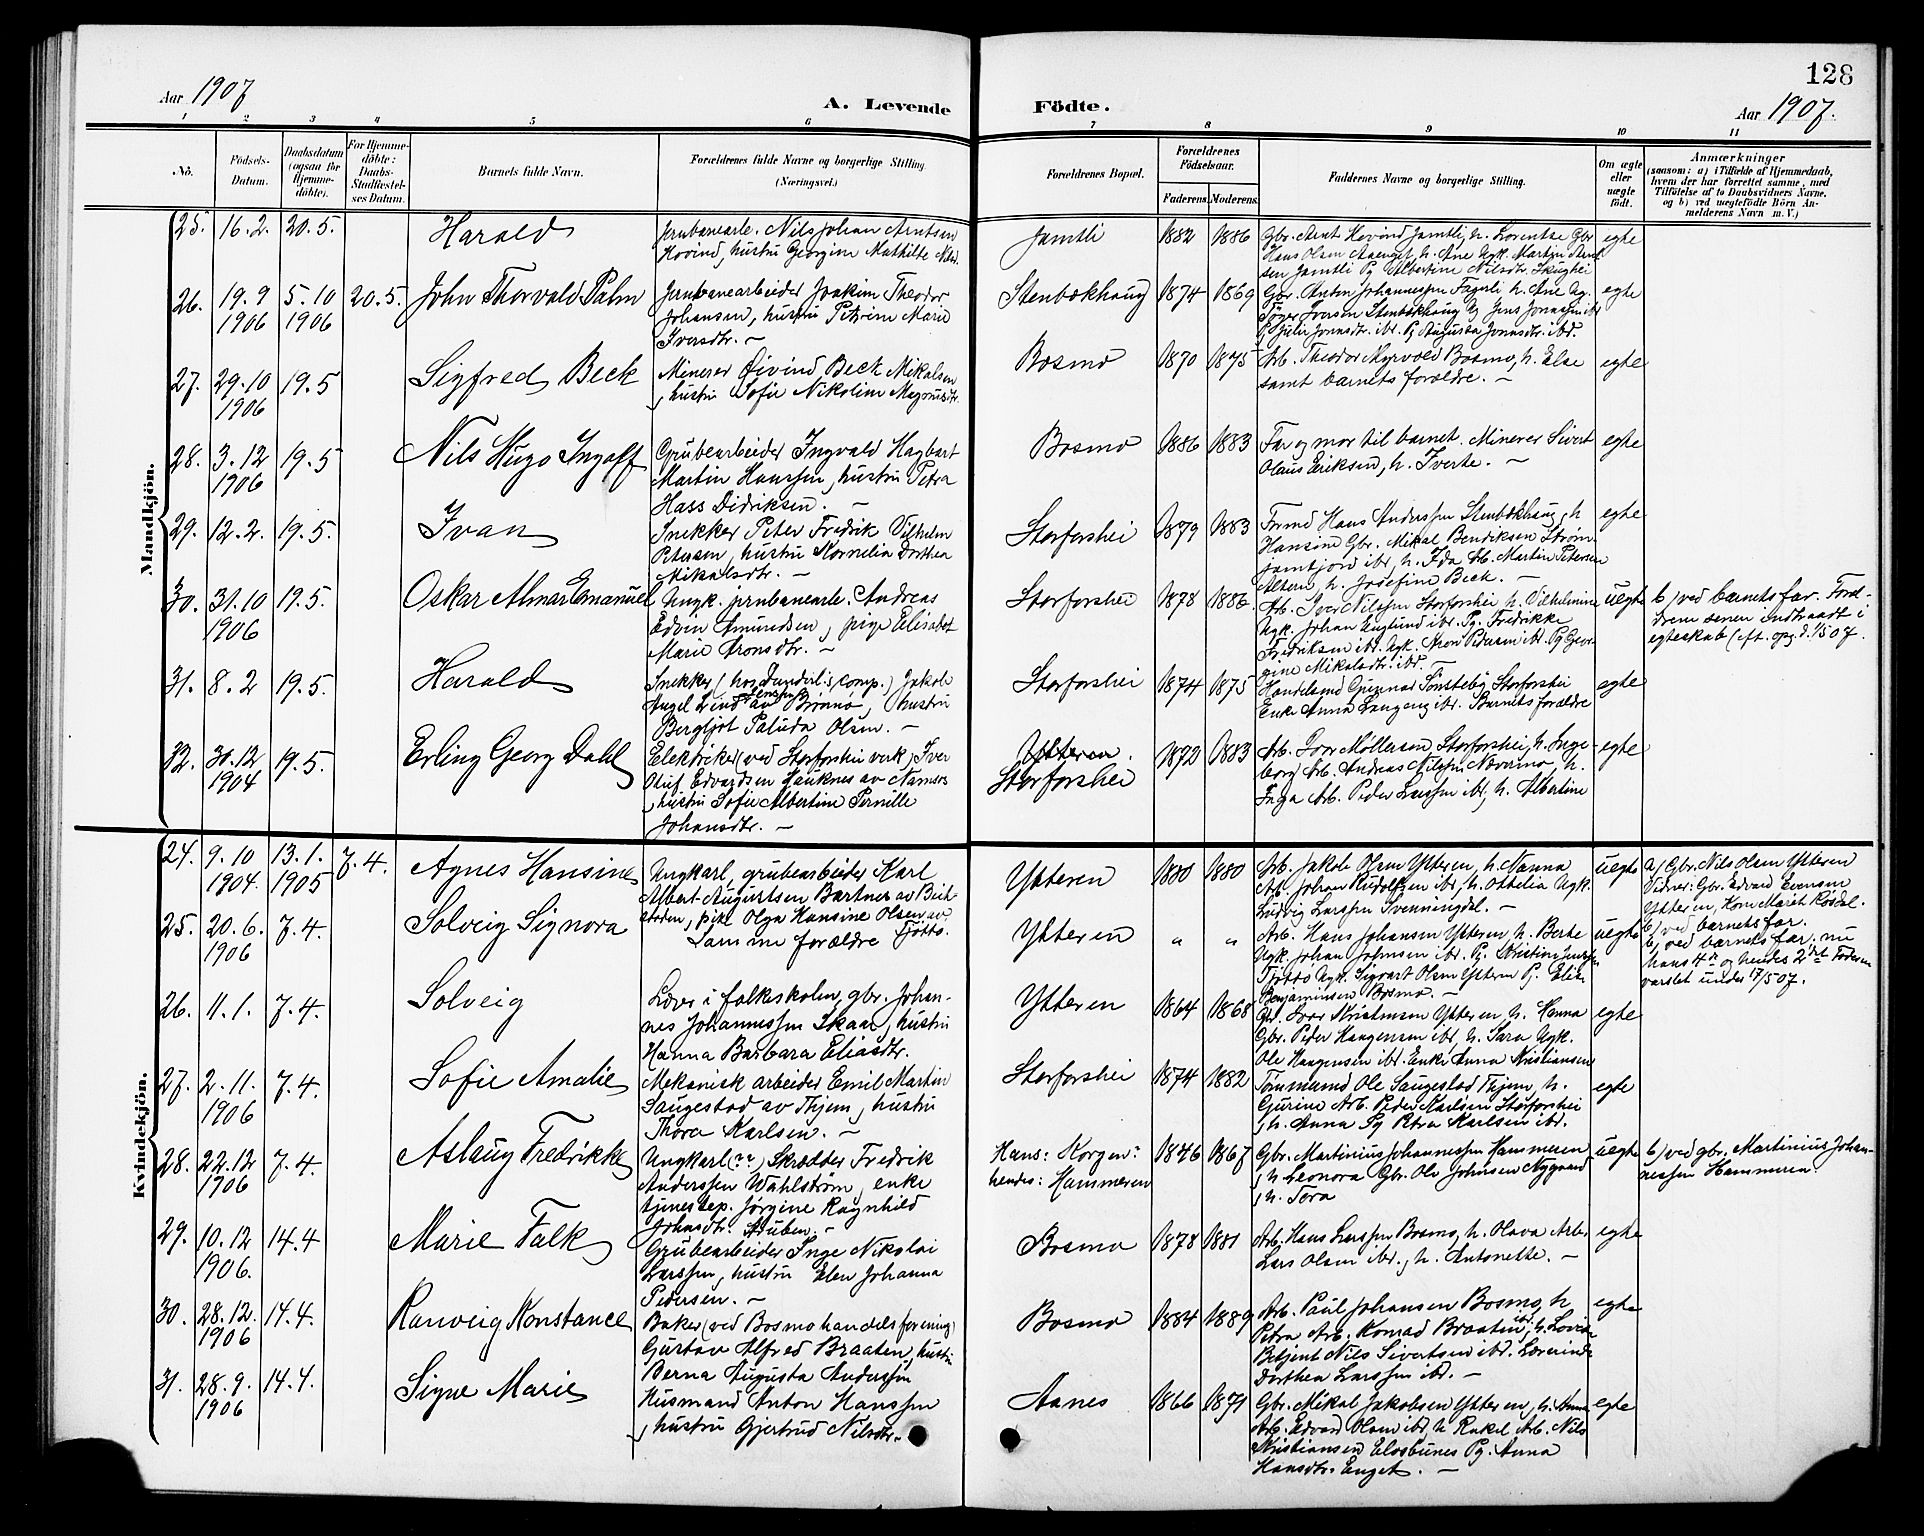 128
Aar 1907
A. Levende Födte.
Aar 1907.
1 2 3 4 5 6 7 8 9 10 11
No.
Födsels-Datum.
Daabsdatum (ogsaa för Hjemmedöbte).
For Hjemmedöbte: Daabs-Stadfæstelses Datum.
Barnets fulde Navn.
Forældrenes fulde Navne og borgerlige Stilling
(Næringsvei.)
Forældrenes Bopæl.
Forældrenes Födselsaar.
Faderens.
Moderens.
Faddernes Navne og borgerlige Stilling.
Om ægte eller uægte födt.
Anmærkninger
(saasom: a) i Tilfælde af Hjemmedaab, hvem der har forrettet samme, med Tilföielse af to Daabsvidners Navne, og b) ved uægtefödte Börn Anmelderens Navn m. V.)
Mandkjön.
25. 16.2. 20.5. Harald
Jernbanearb. Nils Johan Arntsen
Hovind, hustru Georgine Mathilde Nilsd.
Jamtli 1882 1886
Gbr. Arnt Hovind Jamtli, h. Lorentse Gbr
Hans Olsen Aaenget, h. Ane Ugk. Martin Arnt
sen Jamtli Pg Albertine Nilsdtr. Skughei
egte
26. 19.9 1906 5.10 1906 20.5. John Thorvald Palm
Jernbanearbeider Joakim Theodor
Johansen, hustru Petrine Marie
Iversdtr. —
Stenbækhaug 1874 1869
Gbr. Anton Johannessen Fagerli h. Ane Ug.
Iver Iversen Stenbækhaug Ug Jens Jonassen ibr
Pg Julie Jonasdtr. ibr. Pg Augusta Jonasdtr. ibd.
egte
27. 29.10 1906 19.5 Sigfred Beck
Minerer Øivind Beck Mikalsen
, hustru Sofie Nikoline Magnusdtr.
Bosmo 1870 1875
Arb. Theodor Myrvold Bosmo, h. Else
samt barnets forældre. —
egte
28. 3.12 1906 19.5 Nils Hugo Ingolf
Grubearbeider Ingvald Hagbart
Martin Hanssen, hustru Petra
Hass Didriksen. —
Bosmo 1886 1883
Far og mor til barnet. Minerer Sivert
Olaus Eriksen, h. Iverte. —
egte
29. 12.2. 19.5. Ivan
Snekker Peter Fredrik Vilhelm
Petersen, hustru Kornelia Dorthea
Mikalsdtr. —
Storforshei 1879 1883
Formd Hans Anderssen Stenbækhaug, h
Hansine Gbr. Mikal Bendiksen Strøm-
jamtjord ibr, h. Ida Arb. Martin Petersen
Altern, h. Josefine Beck. —
egte
30. 31.10 1906 19.5. Oskar Almar Emanuel
Ungk. jernbanearb. Andreas
Edvin Amundsen, pige Elisabet
Marie Aronsdtr. —
Storforshei 1878 1886
Arb. Iver Nilssen Storforshei h. Vilhelmine
Ugk. Johan Englund ibr. Pg. Fredrikke
Fredriksen ibd. Ugk. Aron Pedersen ibd. Pg Geor-
gine Mikalsdtr. ibd.
uegte
b) ved barnets far. Foræl-
drene senere indtraadt i
egteskab (eft. opg. d. 1/5 07.
31. 8.2 19.5. Harald
Snekker (hos Dunderl.s comp.) Jakob
Angel Lind Jensen av Brønø, hustru
Bergljot Paluda Olsen. —
Storforshei 1874 1875
Handelsmd Gunnar Tønsteby Storforshei
Enke Anna Langeng ibr. Barnets forældre
egte
32. 30.12 1904 19.5. Erling Georg Dahl
Elektriker (ved Storforshei verk) Iver
Oluf Edvardsen Hauknes av Namsos
, hustru Sofie Albertine Pernille
Johansdtr. —
Ytteren.
Storforshei 1872 1883
Arb. Ivar Møllersen Storforshei, h. Inge-
borg Arb. Andreas Nilssen Nævermo, h.
Inga Arb. Peder Larssen ibr, h. Albertine
egte
Kvindekjön.
24. 9.10 1904. 13.1. 1905 7.4. Agnes Hansine
Ungkarl, grubearbeider Karl
Albert Augustsen Bartnes av Beit-
staden, pike Olga Hansine Olsen av
Tjøtta.
Ytteren 1880 1880
Arb. Jakob Olsen Ytteren, h. Nanna
Arb. Johan Rudolfsen ibr, h. Othelia Ugk.
Ludvig Larssen Svenningdal. —
uegte
a) Gbr. Nils Olsen Ytteren
Vidner: Gbr. Edvard Evensen
Ytteren, Kone Maret Rosdal.
b) ved barnets far.
25. 20.6. 1906 7.4. Solveig Signora
Samme forældre
Ytteren " "
Arb. Hans Johansen Ytteren h. Berte
Ugk. Johan Johnsen ibr. Pg. Kristine Jenssen
Tjøtto Ugk. Sigvart Olsen Ytteren Pg. Elen
Benjaminsen Bosmo. —
uegte
b) ved barnets far, nu
hans 4de og hendes 2det Fødesm
varslet under 17/5 07.
26. 11.1. 7.4. Solveig
Lærer i folkeskolen, gbr. Johan-
nes Johannessen Skaar, hustru
Hanna Barbara Eliasdtr.
Ytteren 1864 1868
Gbr. Ivar Kristensen Ytteren, h. Hanna
Gbr. Peder Haagensen ibr, h. Sara Ugk.
Ole Haagensen ibr. Enke Anna Kristiansen
egte
27. 2.11. 1906 7.4. Sofie Amalie
Mekanisk arbeider Emil Martin
Saugestad av Thjem, hustru
Thora Karlsen. —
Storforshei 1874 1882
Tømmermd Ole Saugestad Thjem, h.
Gurine Arb. Peder Karlsen Storforshei
, h. Anna Pg Petra Karlsen ibd.
egte
28. 22.12 1906 7.4. Aslaug Fredrikke
Ungkarl (??) Skrædder Fredrik
Anderssen Wahlstrøm, enke
tjenestep. Jørgine Ragnhild
Johnsdtr. Auben. —
Hans: Korgen:
hendes: Hammeren 1846 1867
Gbr. Martinius Johannessen Hammeren
, h. Leonora Gbr. Ole Johnsen Nygaard
, h. Tora
uegte
b) ved gbr. Martinius Johan-
nessen Hammeren.
29. 10.12 1906. 14.4 Marie Falk
Grubearbeider Inge Nikolai
Larssen, hustru Elen Johanna
Pedersen. —
Bosmo 1878 1881
Arb. Hans Larssen Bosmo, h. Olava Arb.
Lars Olsen ibr., h. Antonette. —
egte
30. 28.12. 1906 14.4. Ranveig Konstance
Baker (ved Bosmo handelsforening)
Gustav Alfred Braaten, hustru
Berna Augusta Anderssen
Bosmo 1884 1889
Arb. Paul Johansen Bosmo, h
Petra Arb. Konrad Braaten ibr., h. Lovise
Betjent Nils Sivertsen ibd. Lærerinde
Dorthea Larssen ibd. —
egte
31. 28.9. 1906 14.4. Signe Marie
Husmand Anton Hanssen
, hustru Gjertrud Nilsdtr.
Aanes 1866 1871
Gbr. Mikal Jakobsen Ytteren, h. Anna
Arb. Edvard Olsen ibd, h Rakel Arb. Nils
Kristiansen Pg. Anna
Hansdtr. Enget. —
egte